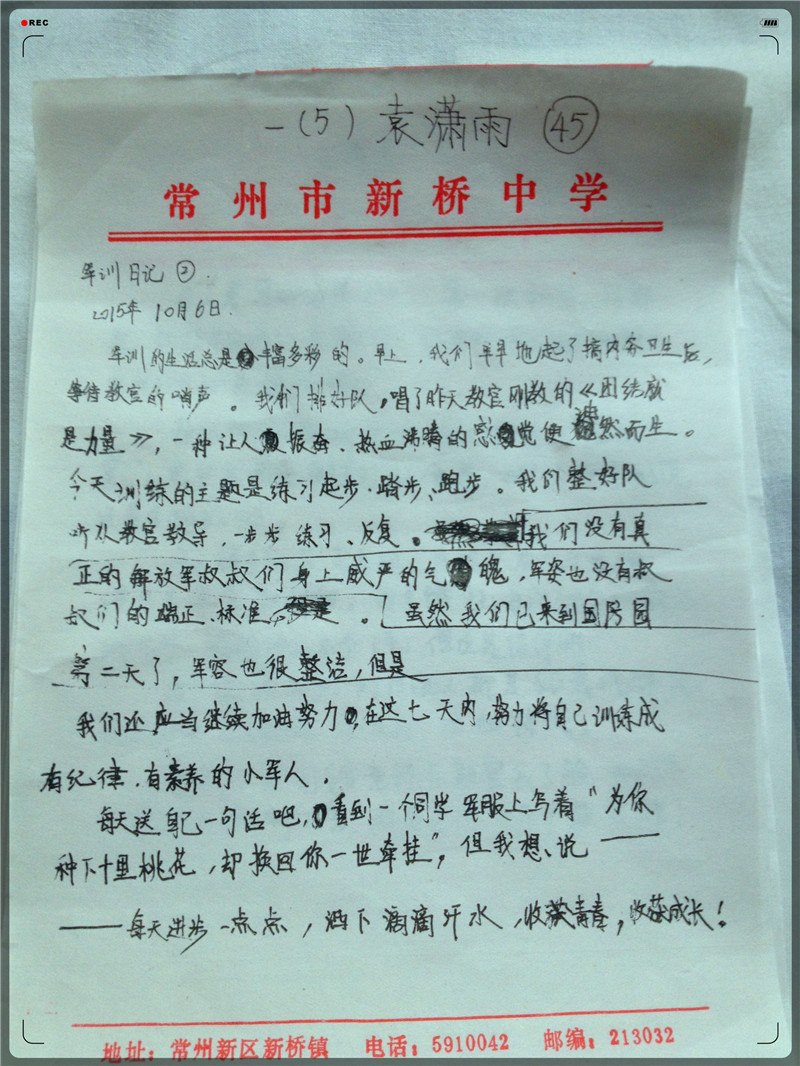 REC
一(5) 袁潇雨 45
常州市新桥中学
军训日记②.
2015年10月6日.
军训的生活总是丰富多彩的。早上，我们早早地起了搞内务卫生后，
等待教官的哨声。我们排好队，唱了昨天教官刚教的《团结就
是力量》，一种让人振奋、热血沸腾的感觉便油然而生。
今天训练的主题是练习起步、踏步、跑步。我们整好队
听从教官教导，一步步练习、反复。我们没有真
正的解放军叔叔们身上威严的气魄，军姿也没有叔
叔们的端正、标准。虽然我们已来到国防园
第二天了，军容也很整洁，但是
我们还应当继续加油努力，在这七天内，努力将自己训练成
有纪律、有素养的小军人．
每天送自己一句话吧，看到一个同学军服上写着“为你
种下十里桃花，却换回你一世牵挂”，但我想说——
——每天进步一点点，洒下滴滴汗水，收获青春，收获成长！
地址：常州新区新桥镇 电话：5910042 邮编：213032